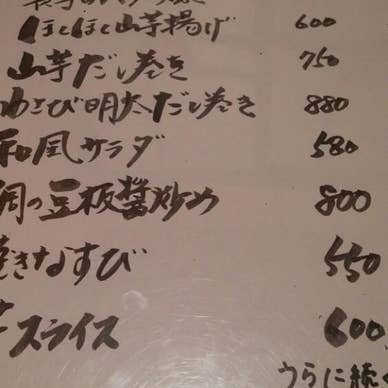 ほくほく山芋揚げ 600
山芋だし巻き 750
わさび明太だし巻き 880
和風サラダ 580
の豆板醤炒め 800
焼きなすび 550
スライス 600
うらに続